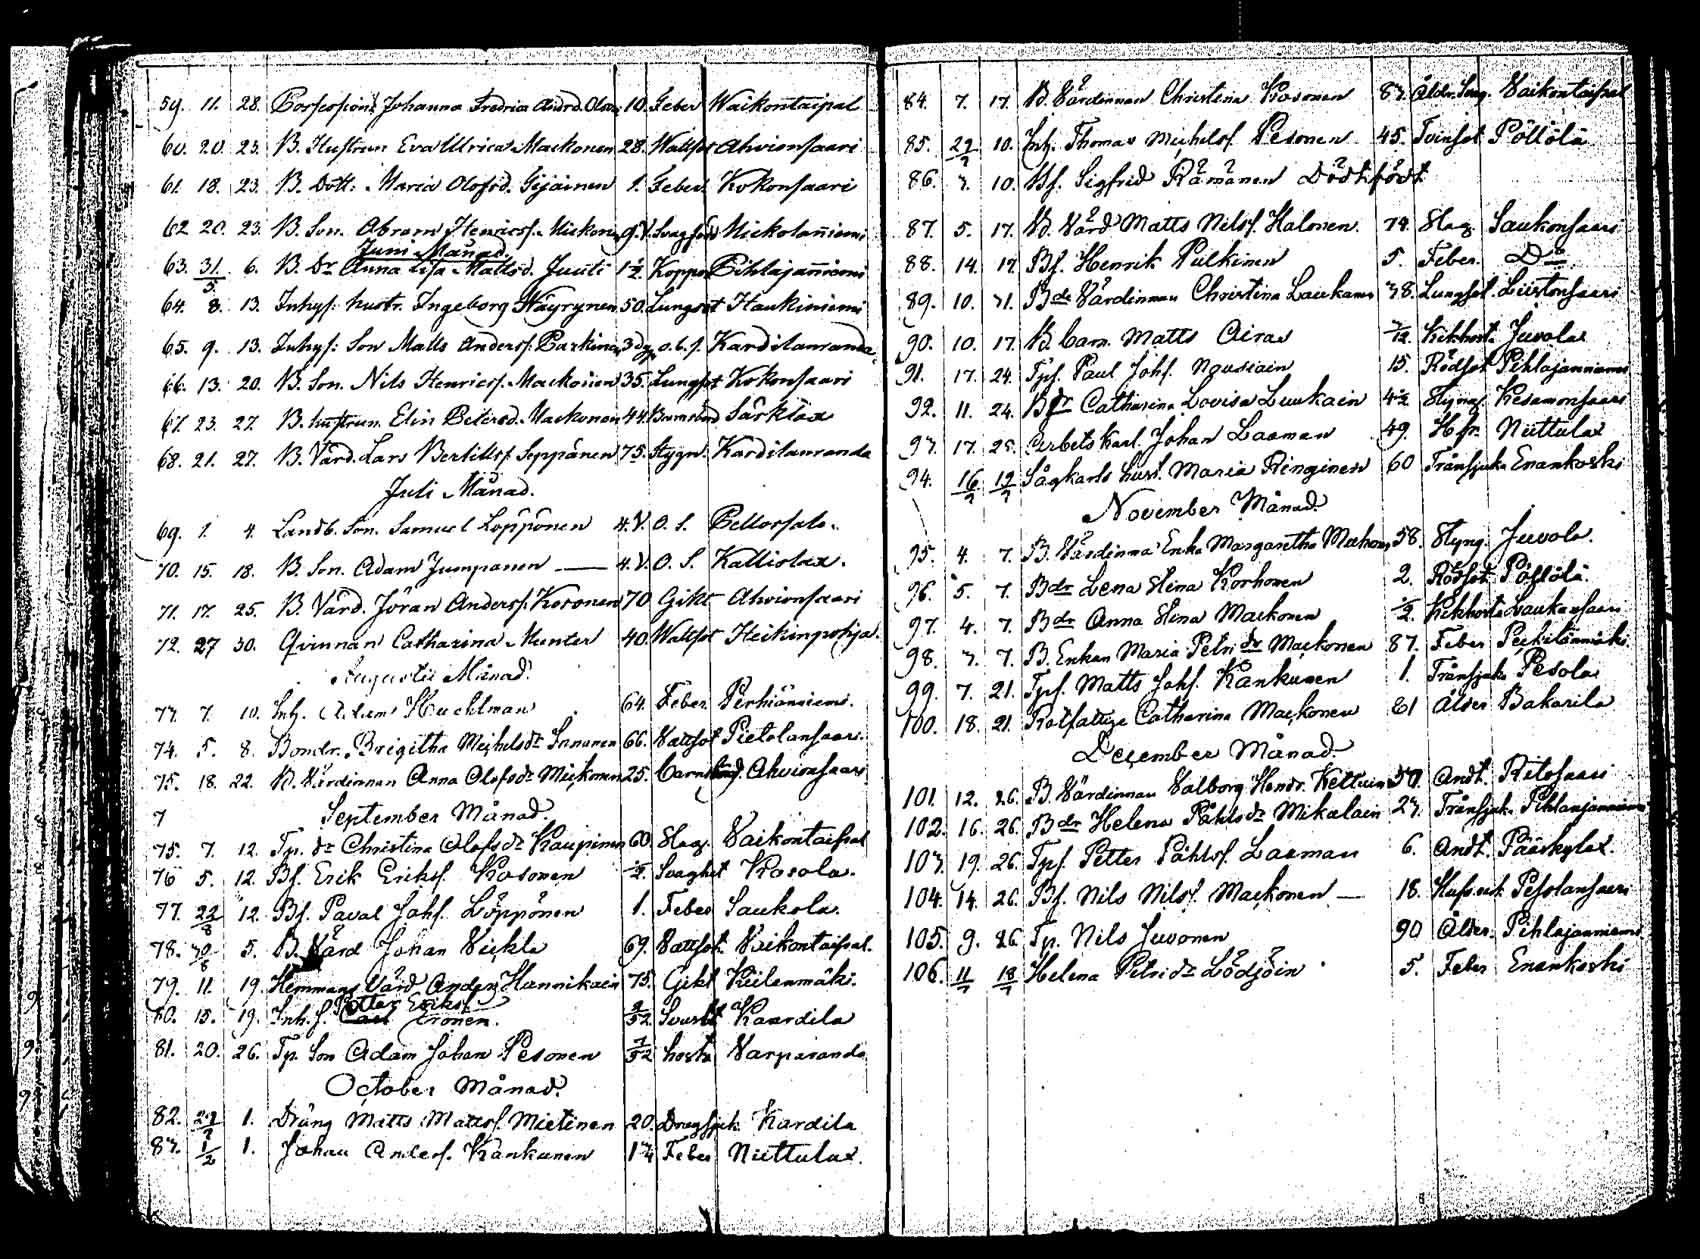 59. 11. 28. Johanna Fredrica Andrd. 10. Feber Waikontaipal
60. 20. 23. B. Hustrun Eva Ulrica Maekonen 28. Wattsot Ahvionsaari
61. 18. 23. B. Dott. Maria Olofsd. 1. Feber Kokonsaari
62. 20. 23. B. Son. Abram Henricsf. 9. V. Nickolaniemi
Juni Månad.
63. 31/5 6. B. Dr Anna Lisa Mattsd. Juuti 1½ Koppor Pihlajaniemi
64. 8. 13. Inhys: hustr. Ingeborg Häyrynen 50. Lungsot Haukiniemi
65. 9. 13. Inhys: Son Matts Andersf. Parkinen 3 dg. o. b. s. Kardilanranda
66. 13. 20. B. Son. Nils Henricsf. Maekonen 35. Lungsot Kokonsaari
67. 23. 27. B. hustrun Elin Petersd. Maekonen 44. Barnsbörd Särklax
68. 21. 27. B. Värd. Lars Bertillsf. Seppänen 75. Stygn. Kardilanranda
Juli Månad.
69. 1. 4. Landb. Son. Samuel Löppönen 4. V. O. S. Pellossalo.
70. 15. 18. B. Son. Adam Jumpanen — 4. V. O. S. Kalliolax.
71. 17. 25. B. Värd. Jöran Andersf. Kosonen 70 Gikt Ahvionsaari
72. 27 30. Qvinnan Catharina Munter 40. Wattsot Heikinpohja.
Augusti Månad.
73. 7. 10. Inh. Adam Huchlman 64. Feber Perhiäniemi.
74. 5. 8. Bondr. Brigitha Michelsdr 66. Vattsot Pietolansaari.
75. 18. 22. B. Värdinnan Anna Olofsdr Mickonen 25. Barnsbörd. Ahvionsaari
7 September Månad.
75. 7. 12. Tp. dr Christina Olofsdr Kaupinen 60. Slag. Vaikontaipal
76 5. 12. Bf. Erik Eriksf. Kosonen ½. Svaghet Kosola.
77. 22/8 12. Bf. Paval Johf. Löppönen 1. Feber Saukola.
78. 30/8 5. B. Värd Johan Veikla 69. Vattsot. Vaikontaipal.
79. 11. 19. Hemmans Värd Anders Hannikain 75. Gikt Kiilenmäki.
80. 15. 19. Inh. f. Petter Eriksf. Tronen. 2/52 Kaardila
81. 20. 26. Tp. Son Adam Johan Pesonen 7/52 hosta Varparanda
October Månad.
82. 29/9 1. Dräng Matts Mattsf. Mietinen 20. Dragsjuk. Kardila
83. 1/2 1. Johan Andersf. Kankunen 1¾ Feber Niittulax.
84. 7. 17. B. Värdinnan Christina Kosonen 83. Vaikontaipal
85. 29/9 10. Inh. Thomas Michelsf. Pesonen 45. Tvinsot Pöllölä
86. 3. 10. Bf. Sigfrid Rämänen Dödtfödt.
87. 5. 17. B. Värd Matts Nilsf. Halonen. 74. Slag Saukonsaari
88. 14. 17. Bf. Henrik Pulkinen 5. Feber. Do
89. 10. 31. Bdr Värdinnan Christina Laukanen 38. Lungsot. Liistonsaari
90. 10. 17. B. barn. Matts Airas 3/12 Kikhosta Juvola
91. 17. 24. Tpf. Paul Johf. Nousiain 15. Rödsot Pihlajanniemi
92. 11. 24. Bdr Catharina Lovisa Luukain 4½ Kesamonsaari
93. 17. 25. Arbets karl. Johan Laaman 49. Niittulax
94. 16/9 19/9 Sågkarls hust. Maria Ringinen 60 Trånsjuka Enankoski
November Månad.
95. 4. 7. B. Värdinna Enka Margaretha Maekonen 58. Styng. Juvola.
96. 5. 7. Bdr Lena Stina Korhonen 2. Rödsot Pöllölä.
97. 4. 7. Bdr Anna Stina Maekonen ½ Kikhosta Laukansaari
98. 3. 7. B. Enkan Maria Petri dr Maekonen 87. Feber
99. 7. 21. Tpf. Matts Johf. Kankunen 1. Trånsjuka Pesola
100. 18. 21. Rotfattige Catharina Maekonen 81 Ålder Bakarila
December Månad.
101. 12. 26. B. Värdinnan Valborg Hendr. Kettuin 50. Andt. Ritosaari
102. 16. 26. Bdr Helena Påhlsdr Mikalain 23. Trånsjuk. Pihlajanniemi
103. 19. 26. Tpf. Petter Påhlsf. Laaman 6. Andt. Pääskylax.
104. 14. 26. Bf. Nils Nilsf. Maekonen — 18. Pesolansaari
105. 9. 26. Tp. Nils Juvonen 90 Ålder. Pihlajanniemi
106. 11/9 18/9 Helena Petri dr Lödjöin 5. Feber Enankoski